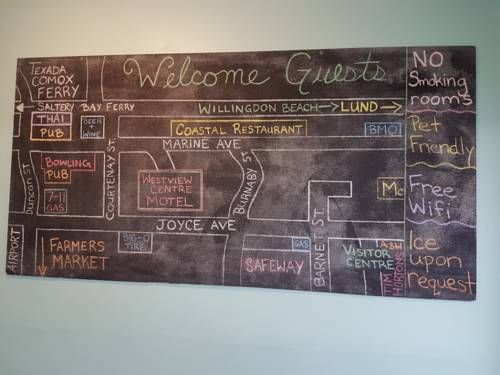 Welcome Guests
TEXADA
COMOX
FERRY
← SALTERY BAY FERRY
WILLINGDON BEACH → LUND →
THAI
PUB
BEER
+
WINE
COASTAL RESTAURANT
BMO
MARINE AVE
DUNCAN ST
BOWLING
PUB
7-11
GAS
COURTENAY ST
WESTVIEW
CENTRE
MOTEL
BURNABY ST
Mc
JOYCE AVE
AIRPORT
FARMERS
MARKET
BIG-O
TIRE
SAFEWAY
GAS
BARNET ST
VISITOR
CENTRE
A&W
TIM
HORTONS
NO
Smoking
rooms
Pet
Friendly
Free
Wifi
Ice
upon
request